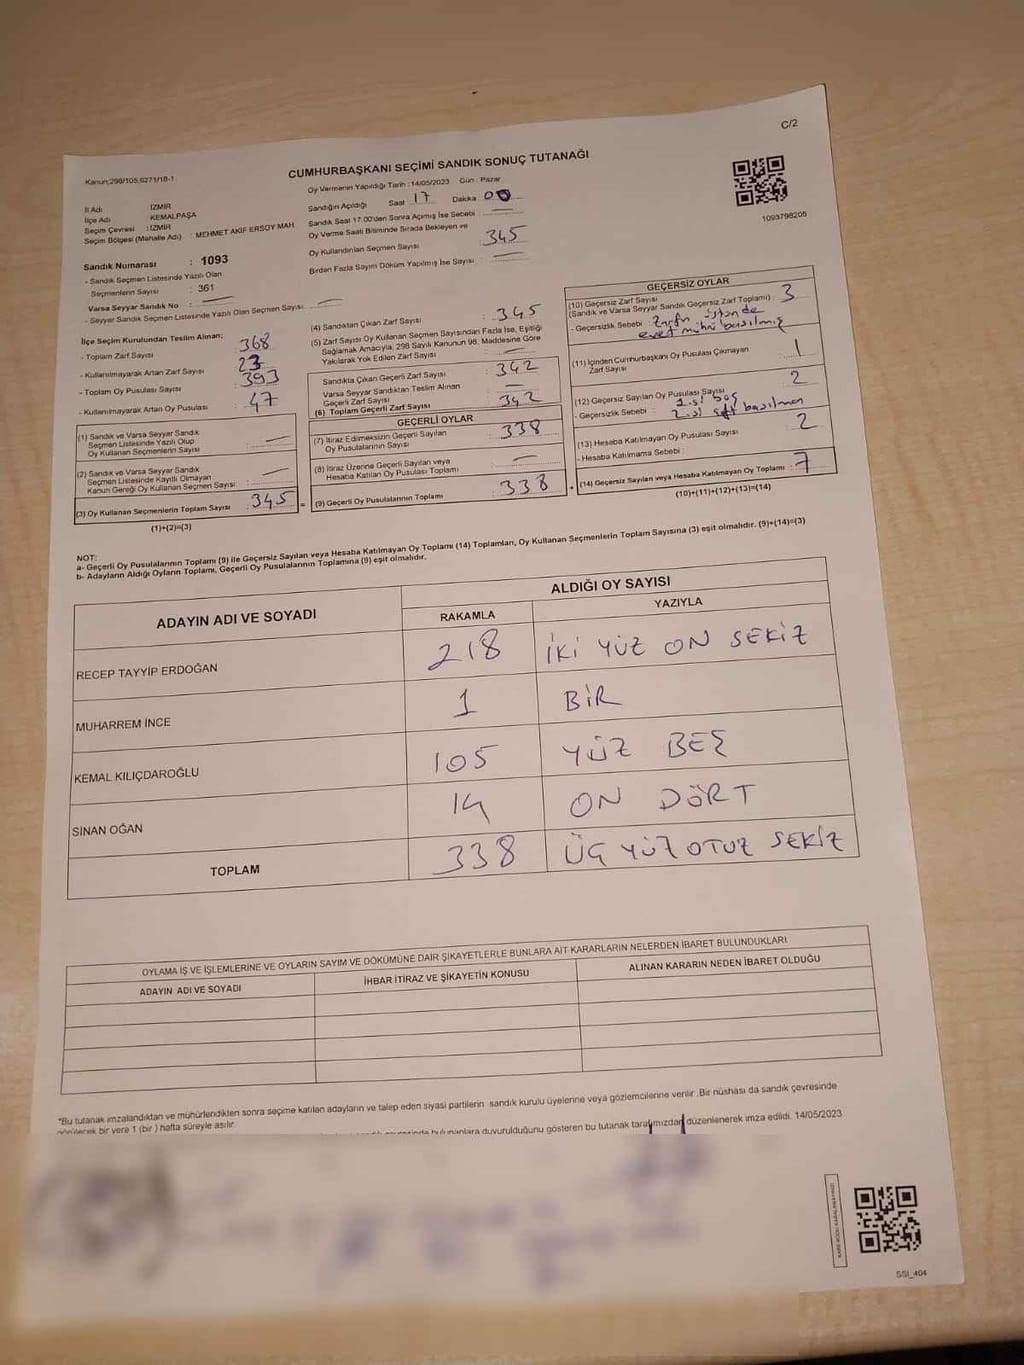 C/2
Kanun;298/105;6271/18-1
CUMHURBAŞKANI SEÇİMİ SANDIK SONUÇ TUTANAĞI
1093798206
İl Adı : İZMİR
İlçe Adı : KEMALPAŞA
Seçim Çevresi : İZMİR
Seçim Bölgesi (Mahalle Adı) : MEHMET AKİF ERSOY MAH.
Sandık Numarası : 1093
- Sandık Seçmen Listesinde Yazılı Olan
Seçmenlerin Sayısı : 361
Varsa Seyyar Sandık No :
- Seyyar Sandık Seçmen Listesinde Yazılı Olan Seçmen Sayısı :
Oy Vermenin Yapıldığı Tarih : 14/05/2023 Gün : Pazar
Sandığın Açıldığı Saat 17 Dakika 00
Sandık Saat 17:00'den Sonra Açılmış İse Sebebi :
Oy Verme Saati Bitiminde Sırada Bekleyen ve
Oy Kullandırılan Seçmen Sayısı : 345
Birden Fazla Sayım Döküm Yapılmış İse Sayısı :
İlçe Seçim Kurulundan Teslim Alınan;
- Toplam Zarf Sayısı : 368
- Kullanılmayarak Artan Zarf Sayısı : 23
- Toplam Oy Pusulası Sayısı : 393
- Kullanılmayarak Artan Oy Pusulası : 47
(1) Sandık ve Varsa Seyyar Sandık
Seçmen Listesinde Yazılı Olup
Oy Kullanan Seçmenlerin Sayısı :
(2) Sandık ve Varsa Seyyar Sandık
Seçmen Listesinde Kayıtlı Olmayan
Kanun Gereği Oy Kullanan Seçmen Sayısı :
(3) Oy Kullanan Seçmenlerin Toplam Sayısı : 345 =
(1)+(2)=(3)
(4) Sandıktan Çıkan Zarf Sayısı : 345
(5) Zarf Sayısı Oy Kullanan Seçmen Sayısından Fazla İse, Eşitliği
Sağlamak Amacıyla, 298 Sayılı Kanunun 98. Maddesine Göre
Yakılarak Yok Edilen Zarf Sayısı :
Sandıkta Çıkan Geçerli Zarf Sayısı : 342
Varsa Seyyar Sandıktan Teslim Alınan
Geçerli Zarf Sayısı :
(6) Toplam Geçerli Zarf Sayısı : 342
GEÇERLİ OYLAR
(7) İtiraz Edilmeksizin Geçerli Sayılan
Oy Pusulalarının Sayısı : 338
(8) İtiraz Üzerine Geçerli Sayılan veya
Hesaba Katılan Oy Pusulası Toplamı :
(9) Geçerli Oy Pusulalarının Toplamı : 338 +
GEÇERSİZ OYLAR
(10) Geçersiz Zarf Sayısı
(Sandık ve Varsa Seyyar Sandık Geçersiz Zarf Toplamı) : 3
- Geçersizlik Sebebi : Zarfın üstünde
evet mührü basılmış
(11) İçinden Cumhurbaşkanı Oy Pusulası Çıkmayan
Zarf Sayısı : 1
(12) Geçersiz Sayılan Oy Pusulası Sayısı : 2
- Geçersizlik Sebebi : 1.si boş
2.si çift basılmış
(13) Hesaba Katılmayan Oy Pusulası Sayısı : 2
- Hesaba Katılmama Sebebi :
(14) Geçersiz Sayılan veya Hesaba Katılmayan Oy Toplamı : 7
(10)+(11)+(12)+(13)=(14)
NOT:
a- Geçerli Oy Pusulalarının Toplamı (9) ile Geçersiz Sayılan veya Hesaba Katılmayan Oy Toplamı (14) Toplamları, Oy Kullanan Seçmenlerin Toplam Sayısına (3) eşit olmalıdır. (9)+(14)=(3)
b- Adayların Aldığı Oyların Toplamı, Geçerli Oy Pusulalarının Toplamına (9) eşit olmalıdır.
ADAYIN ADI VE SOYADI
ALDIĞI OY SAYISI
RAKAMLA YAZIYLA
RECEP TAYYİP ERDOĞAN 218 İKİ YÜZ ON SEKİZ
MUHARREM İNCE 1 BİR
KEMAL KILIÇDAROĞLU 105 YÜZ BEŞ
SİNAN OĞAN 14 ON DÖRT
TOPLAM 338 ÜÇ YÜZ OTUZ SEKİZ
OYLAMA İŞ VE İŞLEMLERİNE VE OYLARIN SAYIM VE DÖKÜMÜNE DAİR ŞİKAYETLERLE BUNLARA AİT KARARLARIN NELERDEN İBARET BULUNDUKLARI
ADAYIN ADI VE SOYADI İHBAR İTİRAZ VE ŞİKAYETİN KONUSU ALINAN KARARIN NEDEN İBARET OLDUĞU
*Bu tutanak imzalandıktan ve mühürlendikten sonra seçime katılan adayların ve talep eden siyasi partilerin sandık kurulu üyelerine veya gözlemcilerine verilir. Bir nüshası da sandık çevresinde
görülecek bir yere 1 (bir) hafta süreyle asılır.
bulunanlara duyurulduğunu gösteren bu tutanak tarafımızdan düzenlenerek imza edildi. 14/05/2023
SSI_404